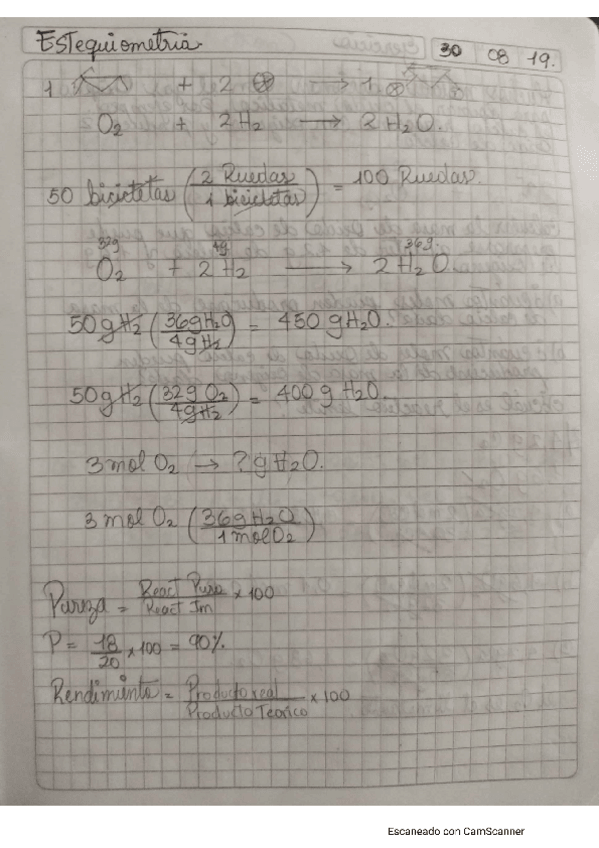 Estequiometria.
30 08 19.
1 + 2 → 1
O₂ + 2H₂ → 2H₂O.
50 bicicletas (2 Ruedas / 1 bicicletas) = 100 Ruedas.
32g 4g 36g
O₂ + 2H₂ → 2H₂O
50gH₂ (36gH₂O / 4gH₂) = 450 gH₂O.
50gH₂ (32g O₂ / 4gH₂) = 400g H₂O.
3 mol O₂ → ? gH₂O.
3 mol O₂ (36g H₂O / 1 mol O₂)
Pureza = React Puro / React Im × 100
P = 18/20 × 100 = 90%
Rendimiento = Producto real / Producto Teorico × 100
Escaneado con CamScanner